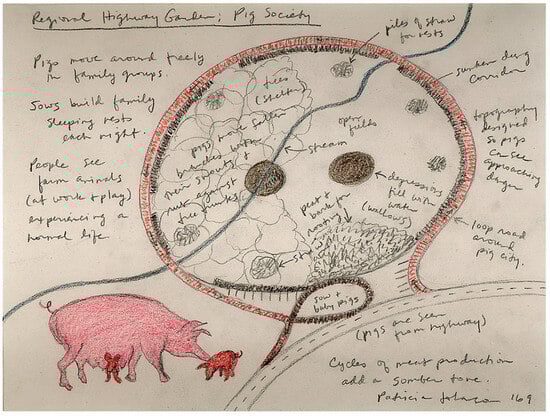 Regional Highway Garden; Pig Society
Pigs move around freely
in family groups.
Sows build family
sleeping nests
each night.
People see
farm animals
(at work & play)
experiencing a
normal life.
piles of straw
for nests
sunken dung
corridor
topography
designed
so pigs
can see
approaching
danger
loop road
around
pig city.
trees
(shelter)
pigs move
branches with
their snouts &
rub against
tree trunks
stream
open
fields
depressions
fill with
water
(wallows)
peat &
bark for
rooting
sow &
baby pigs
(pigs are seen
from highway)
Cycles of meat production
add a somber tone.
Patricia Johanson '69